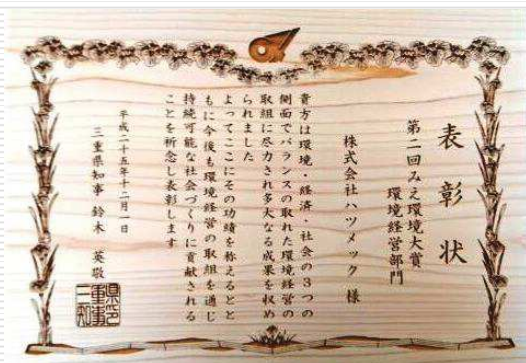 表彰状
第二回みえ環境大賞
環境経営部門
株式会社ハツメック 様
貴方は環境・経済・社会の3つの
側面でバランスの取れた環境経営の
取組に尽力され多大なる成果を収め
られました
よってここにその功績を称えるとと
もに今後も環境経営の取組を通じ
持続可能な社会づくりに貢献される
ことを祈念し表彰します
平成二十五年十二月一日
三重県知事 鈴木 英敬